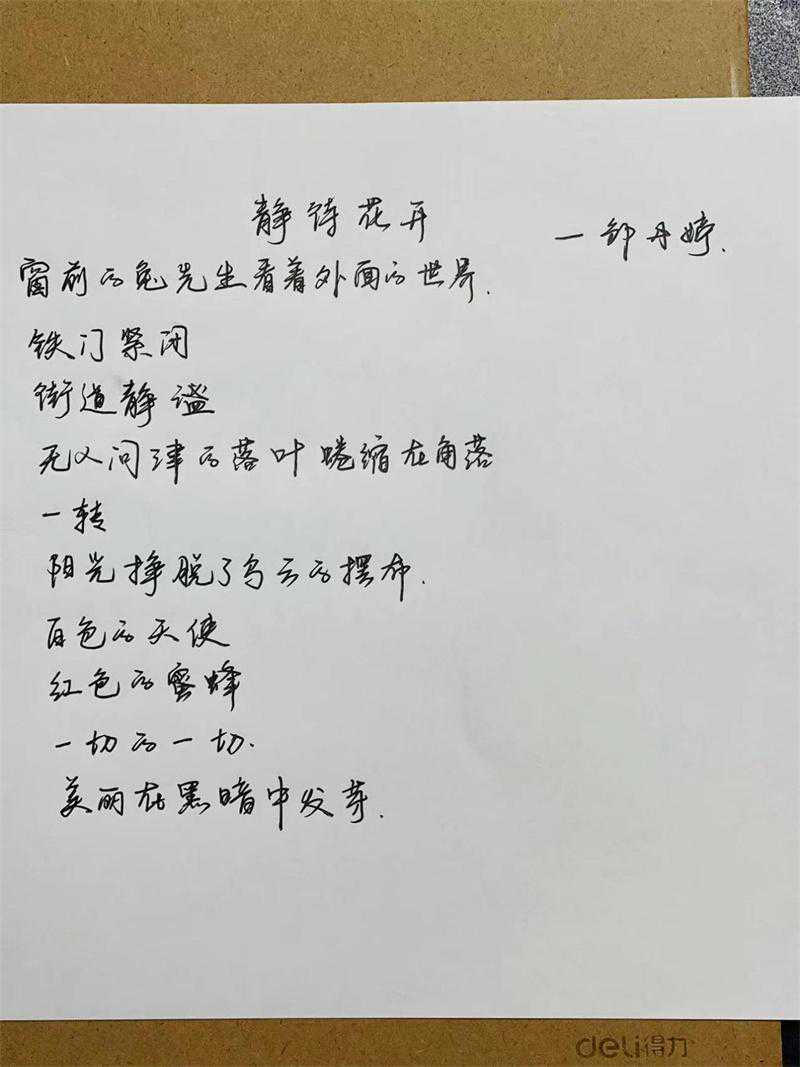 静待花开
一钟丹婷.
窗前的兔先生看着外面的世界.
铁门紧闭
街道静谧
无人问津的落叶蜷缩在角落
一转
阳光挣脱了乌云的摆布.
白色的天使
红色的蜜蜂
一切的一切.
美丽在黑暗中发芽.
deli得力